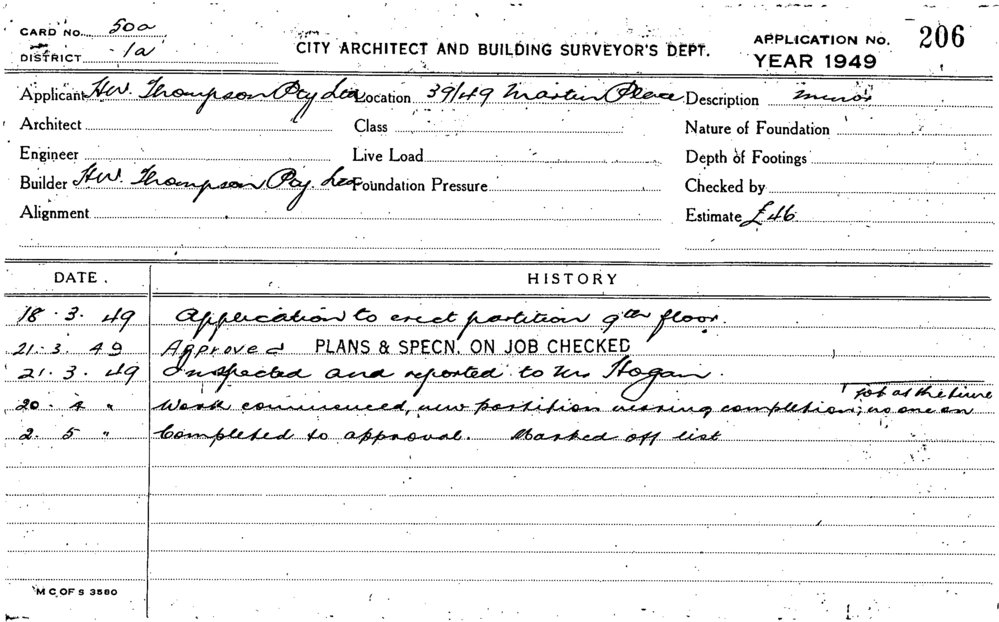 CARD NO. 50a
DISTRICT 1a
CITY ARCHITECT AND BUILDING SURVEYOR'S DEPT.
APPLICATION NO. 206
YEAR 1949
Applicant HW. Thompson Pty Ltd Location 39/49 Martin Place Description minor
Architect Class Nature of Foundation
Engineer Live Load Depth of Footings
Builder HW. Thompson Pty. Ltd Foundation Pressure Checked by
Alignment Estimate £46
DATE. HISTORY
18.3.49 Application to erect partition 9th floor.
21.3.49 Approved PLANS & SPECN. ON JOB CHECKED
21.3.49 Inspected and reported to Mr Hogan.
job at the time
20.4 " Work commenced, new partition nearing completion; no one on
2.5 " Completed to approval. Marked off list
M C OF S 3580